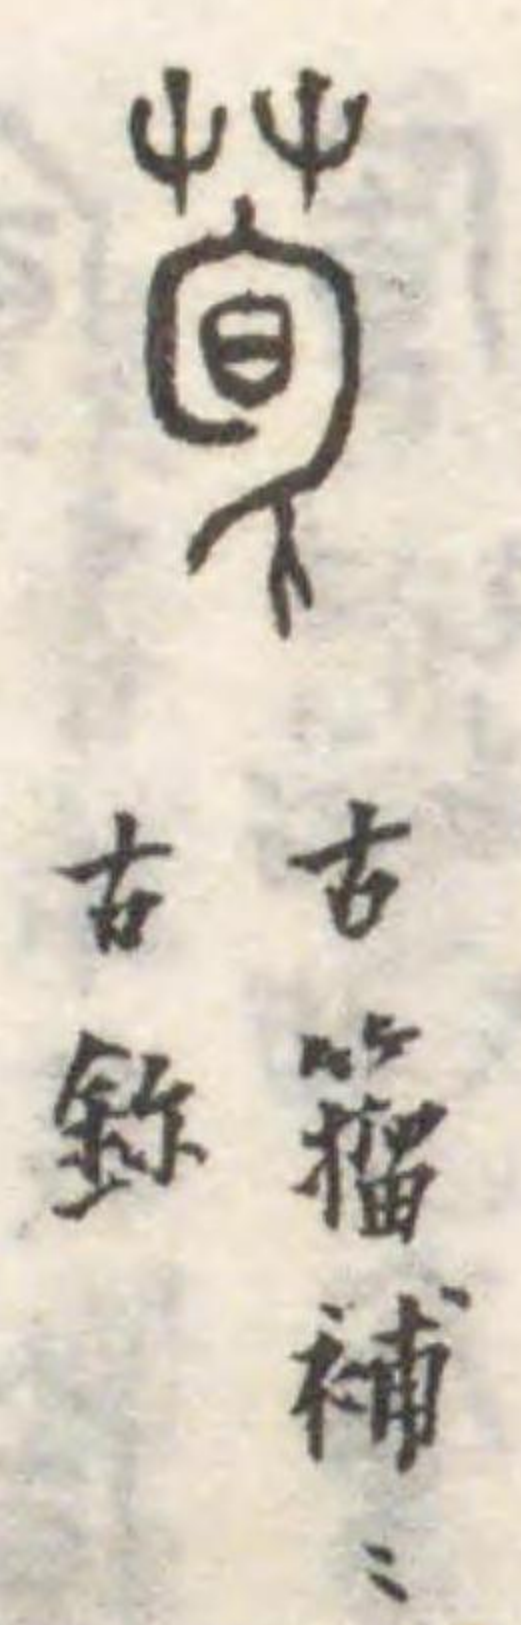 古籀補〻
古鉨